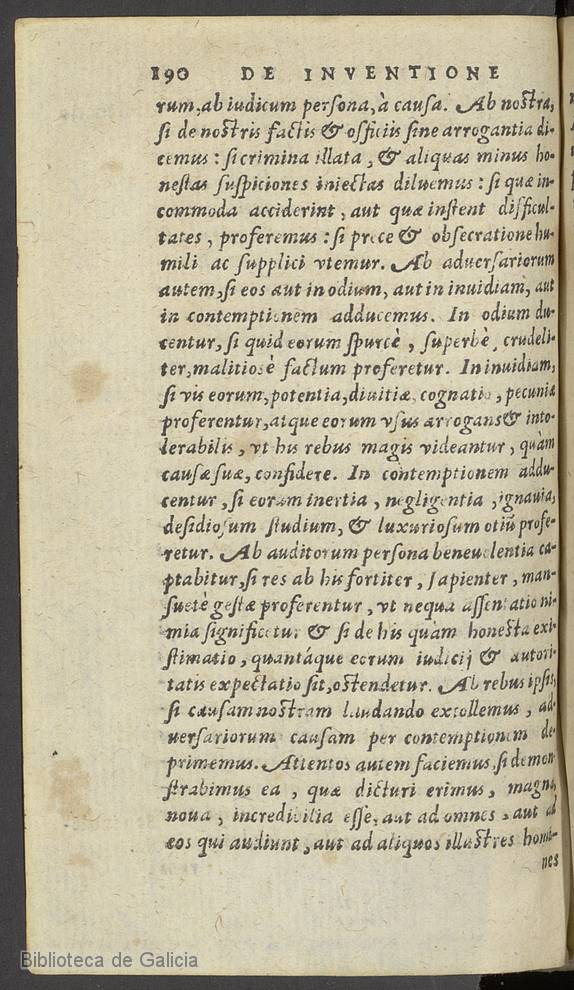 190 DE INVENTIONE
rum, ab iudicum persona, à causa. Ab nostra,
si de nostris factis & officiis sine arrogantia di-
cemus : si crimina illata, & aliquas minus ho-
nestas suspiciones iniectas diluemus : si quæ in-
commoda acciderint, aut quæ instent difficul-
tates, proferemus : si prece & obsecratione hu-
mili ac supplici vtemur. Ab aduersariorum
autem, si eos aut in odium, aut in inuidiam, aut
in contemptionem adducemus. In odium du-
centur, si quid eorum spurcè, superbè, crudeli-
ter, malitiosè factum proferetur. In inuidiam,
si vis eorum, potentia, diuitiæ, cognatio, pecuniæ
proferentur, atque eorum vsus arrogans & into-
lerabilis, vt his rebus magis videantur, quàm
causæ suæ, confidere. In contemptionem addu-
centur, si eorum inertia, negligentia, ignauia,
desidiosum studium, & luxuriosum otiũ profe-
retur. Ab auditorum persona beneuolentia ca-
ptabitur, si res ab his fortiter, sapienter, man-
suetè gestæ proferentur, vt nequa assentatio ni-
mia significetur & si de his quàm honesta exi-
stimatio, quantáque eorum iudicij & autori-
tatis expectatio sit, ostendetur. Ab rebus ipsis,
si causam nostram laudando extollemus, ad-
uersariorum causam per contemptionem de-
primemus. Attentos autem faciemus, si demon-
strabimus ea, quæ dicturi erimus, magna,
noua, incredibilia esse, aut ad omnes, aut ad
eos qui audiunt, aut ad aliquos illustres homi-
nes
Biblioteca de Galicia